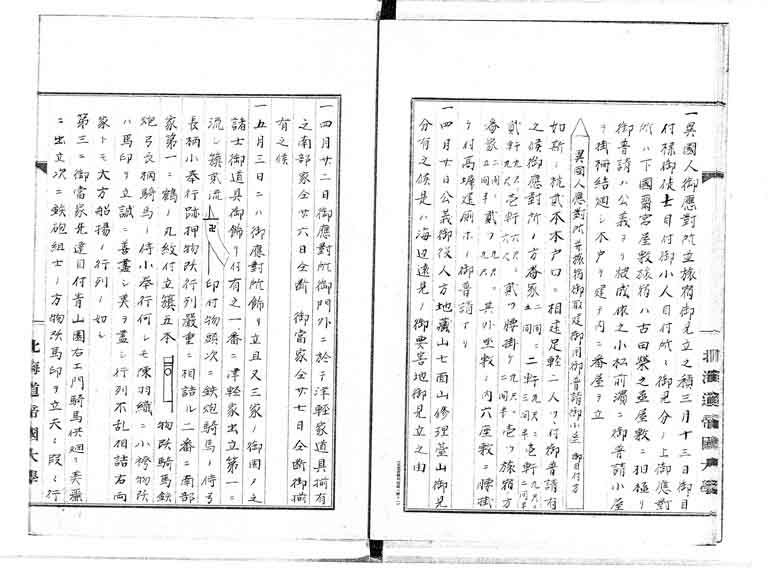 一異國人御應對所並旅宿御見立之積三月十三日御目
付様御徒士目付御小人目付所々御見分ノ上御應對
所ハ下國爾宮屋敷旅宿ハ古田榮之亟屋敷ニ相極リ
御普請ハ公義ヨリ被成依之小松前濱ニ御普請小屋
ヲ掛柵結廻シ木戸ヲ建テ内ニ番屋ヲ立
異國人應對所並旅宿御取建御用御普請御小屋 御目付方
如斯ノ杭貳本木戸口ニ相建足軽二人ツヽ付御普請有
之候御應對所ノ方番家二間ニ二軒九尺ニ壱軒九尺ニ
貳軒九尺ニ壱軒六尺ニ貳ツ腰掛ケ九尺ニ壱ツ旅宿方
番家二間半ニ貳ツ九尺 其外坐敷ノ内六座敷ニ腰掛
ヲ付高塀建厠ホノ御普請アリ
一四月廿日公義御役人方地藏山七面山修理臺山御見
分有之候是ハ海辺遠見ノ御要害地御見立之由
一四月廿二日御應對所御門外ニ於テ津軽家道具揃有
之南部家仝廿六日仝断 御當家仝廿七日仝断御揃
有之候
一五月三日ニハ御應對所飾リ立且又三家ノ御固ノ之
諸士御道具御飾リ付有之一番ニ津軽家出立第一ニ
流シ籏京流 卍 印付物頭次ニ鉄炮騎馬ノ侍弓
長柄小奉行跡押物頭行列嚴重ニ相詰ル二番ニ南部
家第一ニ鶴ノ丸紋付立籏五本 物頭騎馬鉄
炮弓長柄騎馬ノ侍小奉行何レモ陳羽織ニ小袴物頭
ハ馬印ヲ立誠ニ善盡シ美ヲ盡シ行列不乱相詰右両
家トモ大方船揚ノ行列ノ如シ
第三ニ御當家先達目付青山園右エ門騎馬供廻リ美麗
ニ出立次ニ鉄砲組士ノ方物頭馬印ヲ立天々段々行
北海道帝國大學
北海道帝國大學